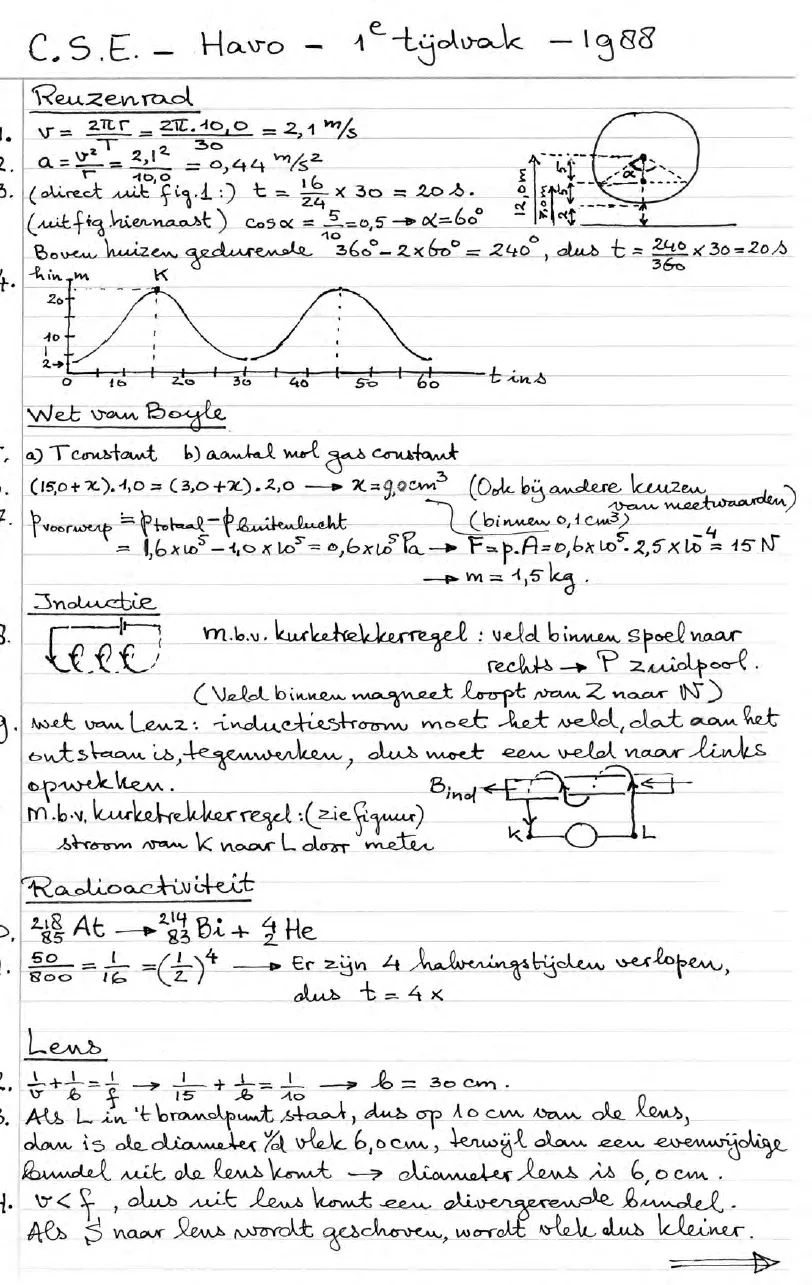 C.S.E. – Havo – 1e tijdvak – 1988
Reuzenrad
1. v = 2πr/T = 2π.10,0/30 = 2,1 m/s
2. a = v²/r = 2,1²/10,0 = 0,44 m/s²
3. (direct uit fig.1:) t = 16/24 x 30 = 20 s.
(uit fig. hiernaast) cosα = 5/10 = 0,5 → α = 60°
12,0m
5
5
α
2
Boven huizen gedurende 360° – 2x60° = 240°, dus t = 240/360 x 30 = 20 s
4. h in m
K
20
10
2→
0 10 20 30 40 50 60 t in s
Wet van Boyle
a) T constant b) aantal mol gas constant
(15,0 + x).1,0 = (3,0 + x).2,0 → x = 9,0 cm³ (Ook bij andere keuzen van meetwaarden)
(binnen 0,1 cm³)
7. p voorwerp = p totaal – p buitenlucht
= 1,6x10⁵ – 1,0x10⁵ = 0,6x10⁵ Pa → F = p.A = 0,6x10⁵.2,5x10⁻⁴ = 15 N
→ m = 1,5 kg.
Inductie
8. m.b.v. kurketrekkerregel : veld binnen spoel naar
rechts → P zuidpool.
(Veld binnen magneet loopt van Z naar N)
9. Wet van Lenz: inductiestroom moet het veld, dat aan het
ontstaan is, tegenwerken, dus moet een veld naar links
opwekken.
B ind
m.b.v. kurketrekkerregel: (zie figuur)
stroom van K naar L door meter
K L
Radioactiviteit
²¹⁸₈₅At → ²¹⁴₈₃Bi + ⁴₂He
50/800 = 1/16 = (1/2)⁴ → Er zijn 4 halveringstijden verlopen,
dus t = 4 x
Lens
1/v + 1/b = 1/f → 1/15 + 1/b = 1/10 → b = 30 cm.
3. Als L in 't brandpunt staat, dus op 10 cm van de lens,
dan is de diameter v/d vlek 6,0 cm, terwijl dan een evenwijdige
bundel uit de lens komt → diameter lens is 6,0 cm.
4. v < f , dus uit lens komt een divergerende bundel.
Als S naar lens wordt geschoven, wordt vlek dus kleiner.